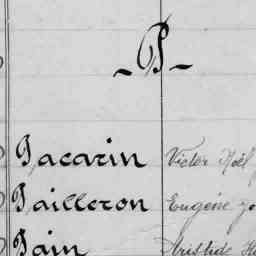 - P -
Pacarin Victor Noël
Pailleron Eugène
Pain Aristide